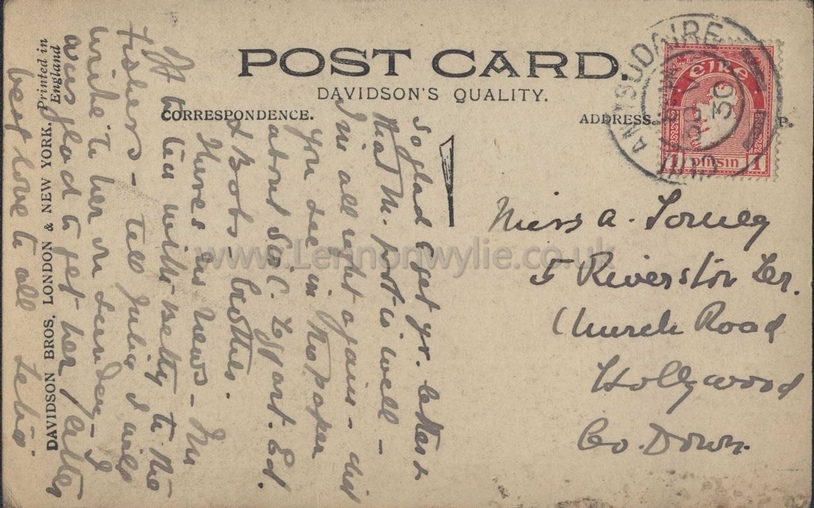 POST CARD.
DAVIDSON'S QUALITY.
CORRESPONDENCE.
ADDRESS
P.
DAVIDSON BROS, LONDON & NEW YORK.
Printed in
England
éire
1 pinsin 1
30
so glad to get yr. letter &
that M. foot is well -
I'm all right again - did
you see in the paper
about
& Bobs - brother.
There's no news - I'm
off to tea with Betty to the
Fishers - tell Julia I will
write to her on Sunday - I
was glad to get her letter
best love to all
Miss A.
5 Riverston Ter.
Church Road
Hollywood
Co. Down.
www.Lennonwylie.co.uk